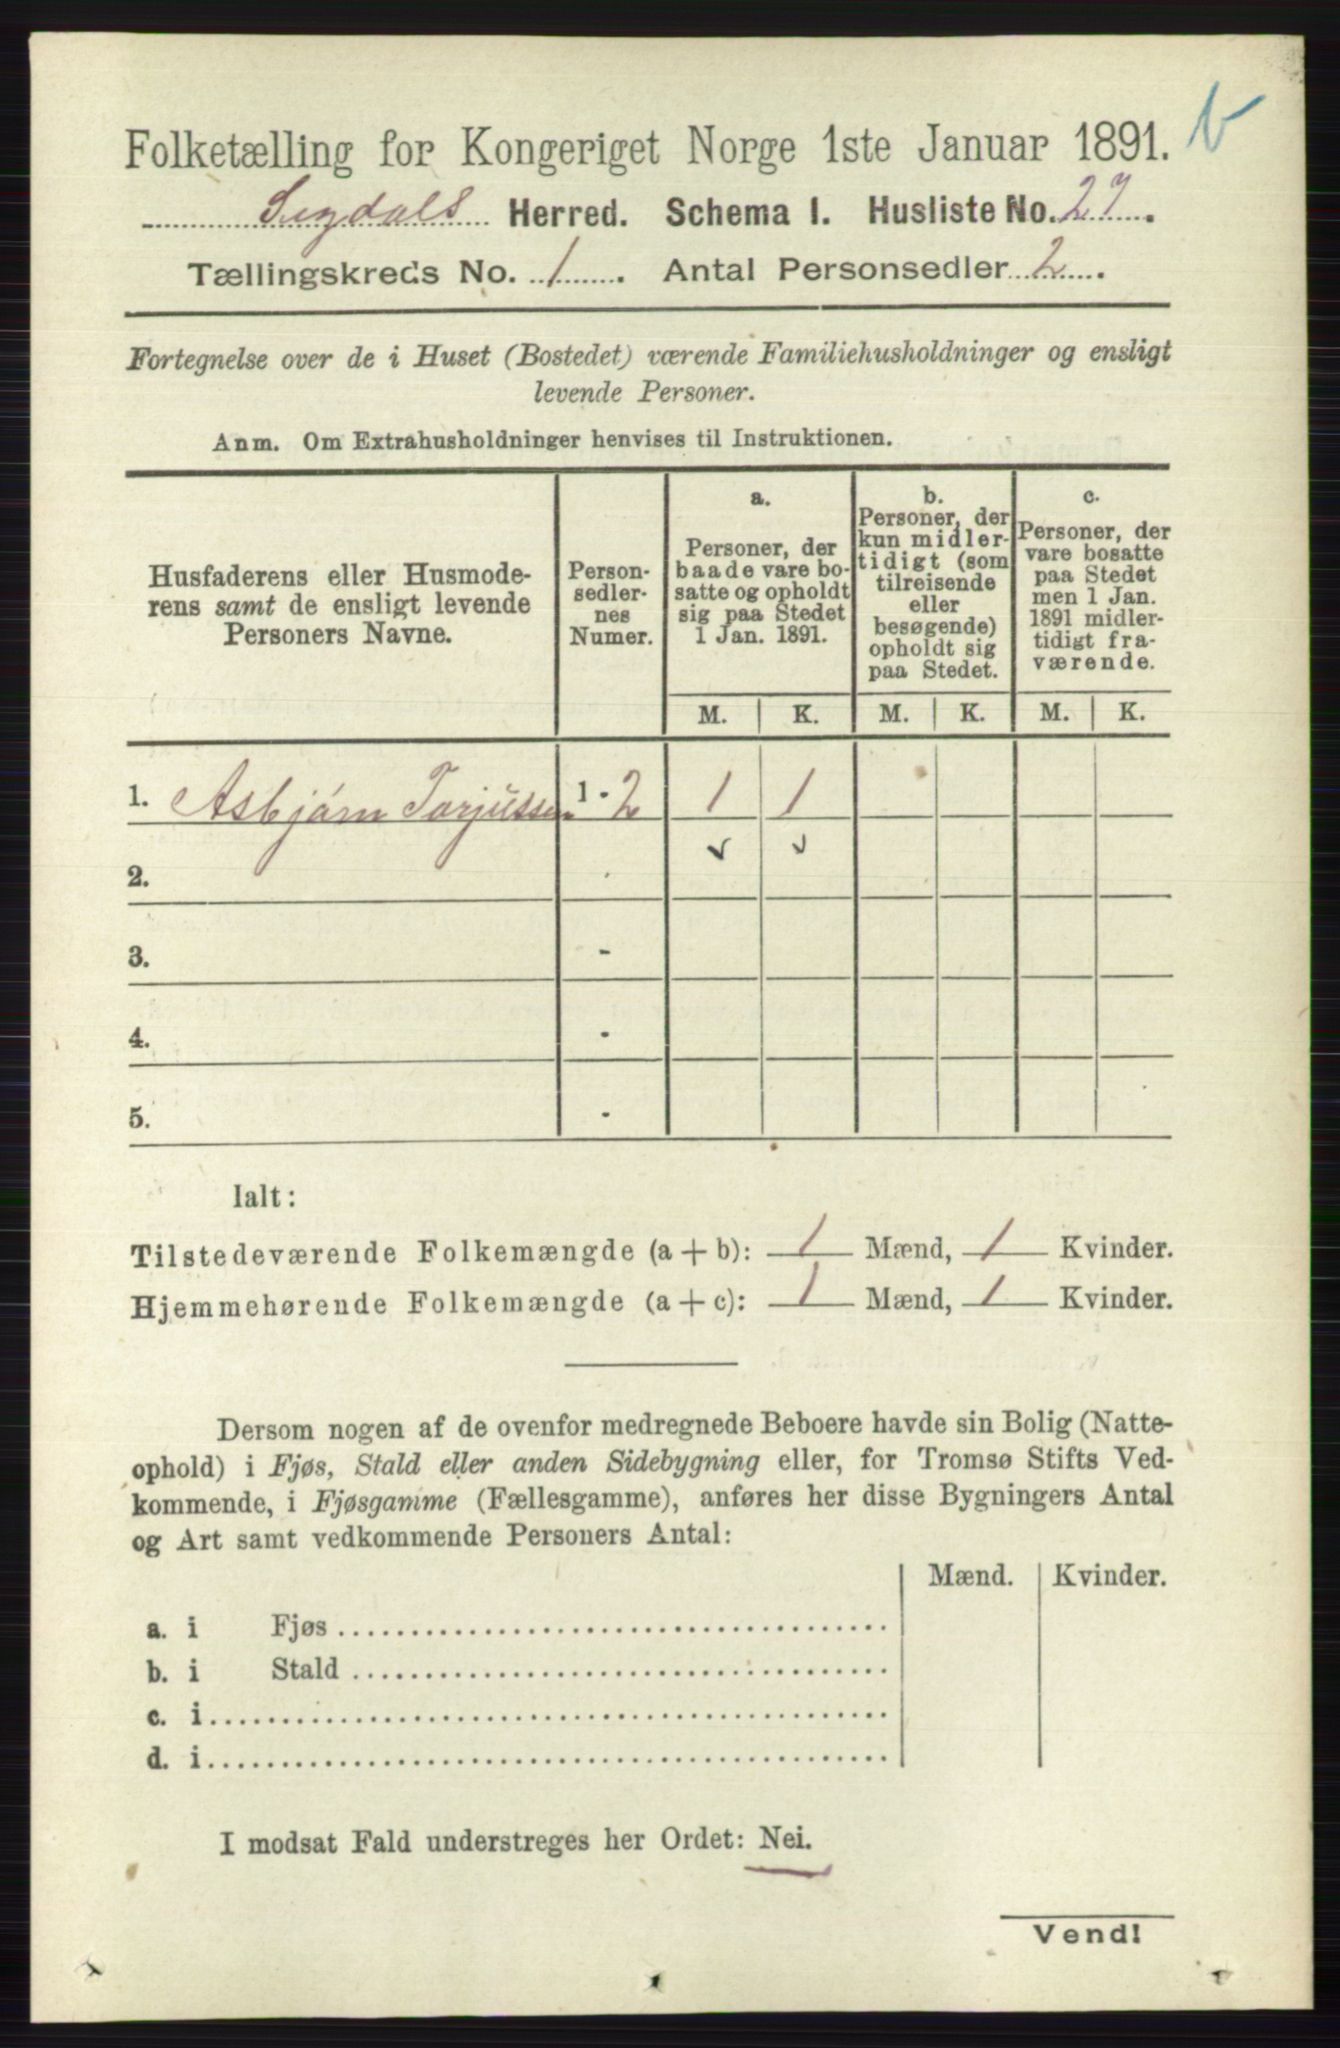 Folketælling for Kongeriget Norge 1ste Januar 1891.
Sigdals Herred. Schema I. Husliste No. 27.
Tællingskreds No. 1. Antal Personsedler 2.
Fortegnelse over de i Huset (Bostedet) værende Familiehusholdninger og ensligt
levende Personer.
Anm. Om Extrahusholdninger henvises til Instruktionen.
Husfaderens eller Husmode-
rens samt de ensligt levende
Personers Navne.
Person-
sedler-
nes
Numer.
a.
Personer, der
baade vare bo-
satte og opholdt
sig paa Stedet
1 Jan. 1891.
b.
Personer, der
kun midler-
tidigt (som
tilreisende
eller
besøgende)
opholdt sig
paa Stedet.
c.
Personer, der
vare bosatte
paa Stedet
men 1 Jan.
1891 midler-
tidigt fra-
værende.
M. K. M. K. M. K.
1. Asbjørn Torjussen 1 - 2 1 1
2. -
3. -
4. -
5. -
Ialt:
Tilstedeværende Folkemængde (a + b): 1 Mænd, 1 Kvinder.
Hjemmehørende Folkemængde (a + c): 1 Mænd, 1 Kvinder.
Dersom nogen af de ovenfor medregnede Beboere havde sin Bolig (Natte-
ophold) i Fjøs, Stald eller anden Sidebygning eller, for Tromsø Stifts Ved-
kommende, i Fjøsgamme (Fællesgamme), anføres her disse Bygningers Antal
og Art samt vedkommende Personers Antal:
Mænd. Kvinder.
a. i Fjøs
b. i Stald
c. i
d. i
I modsat Fald understreges her Ordet: Nei.
Vend!